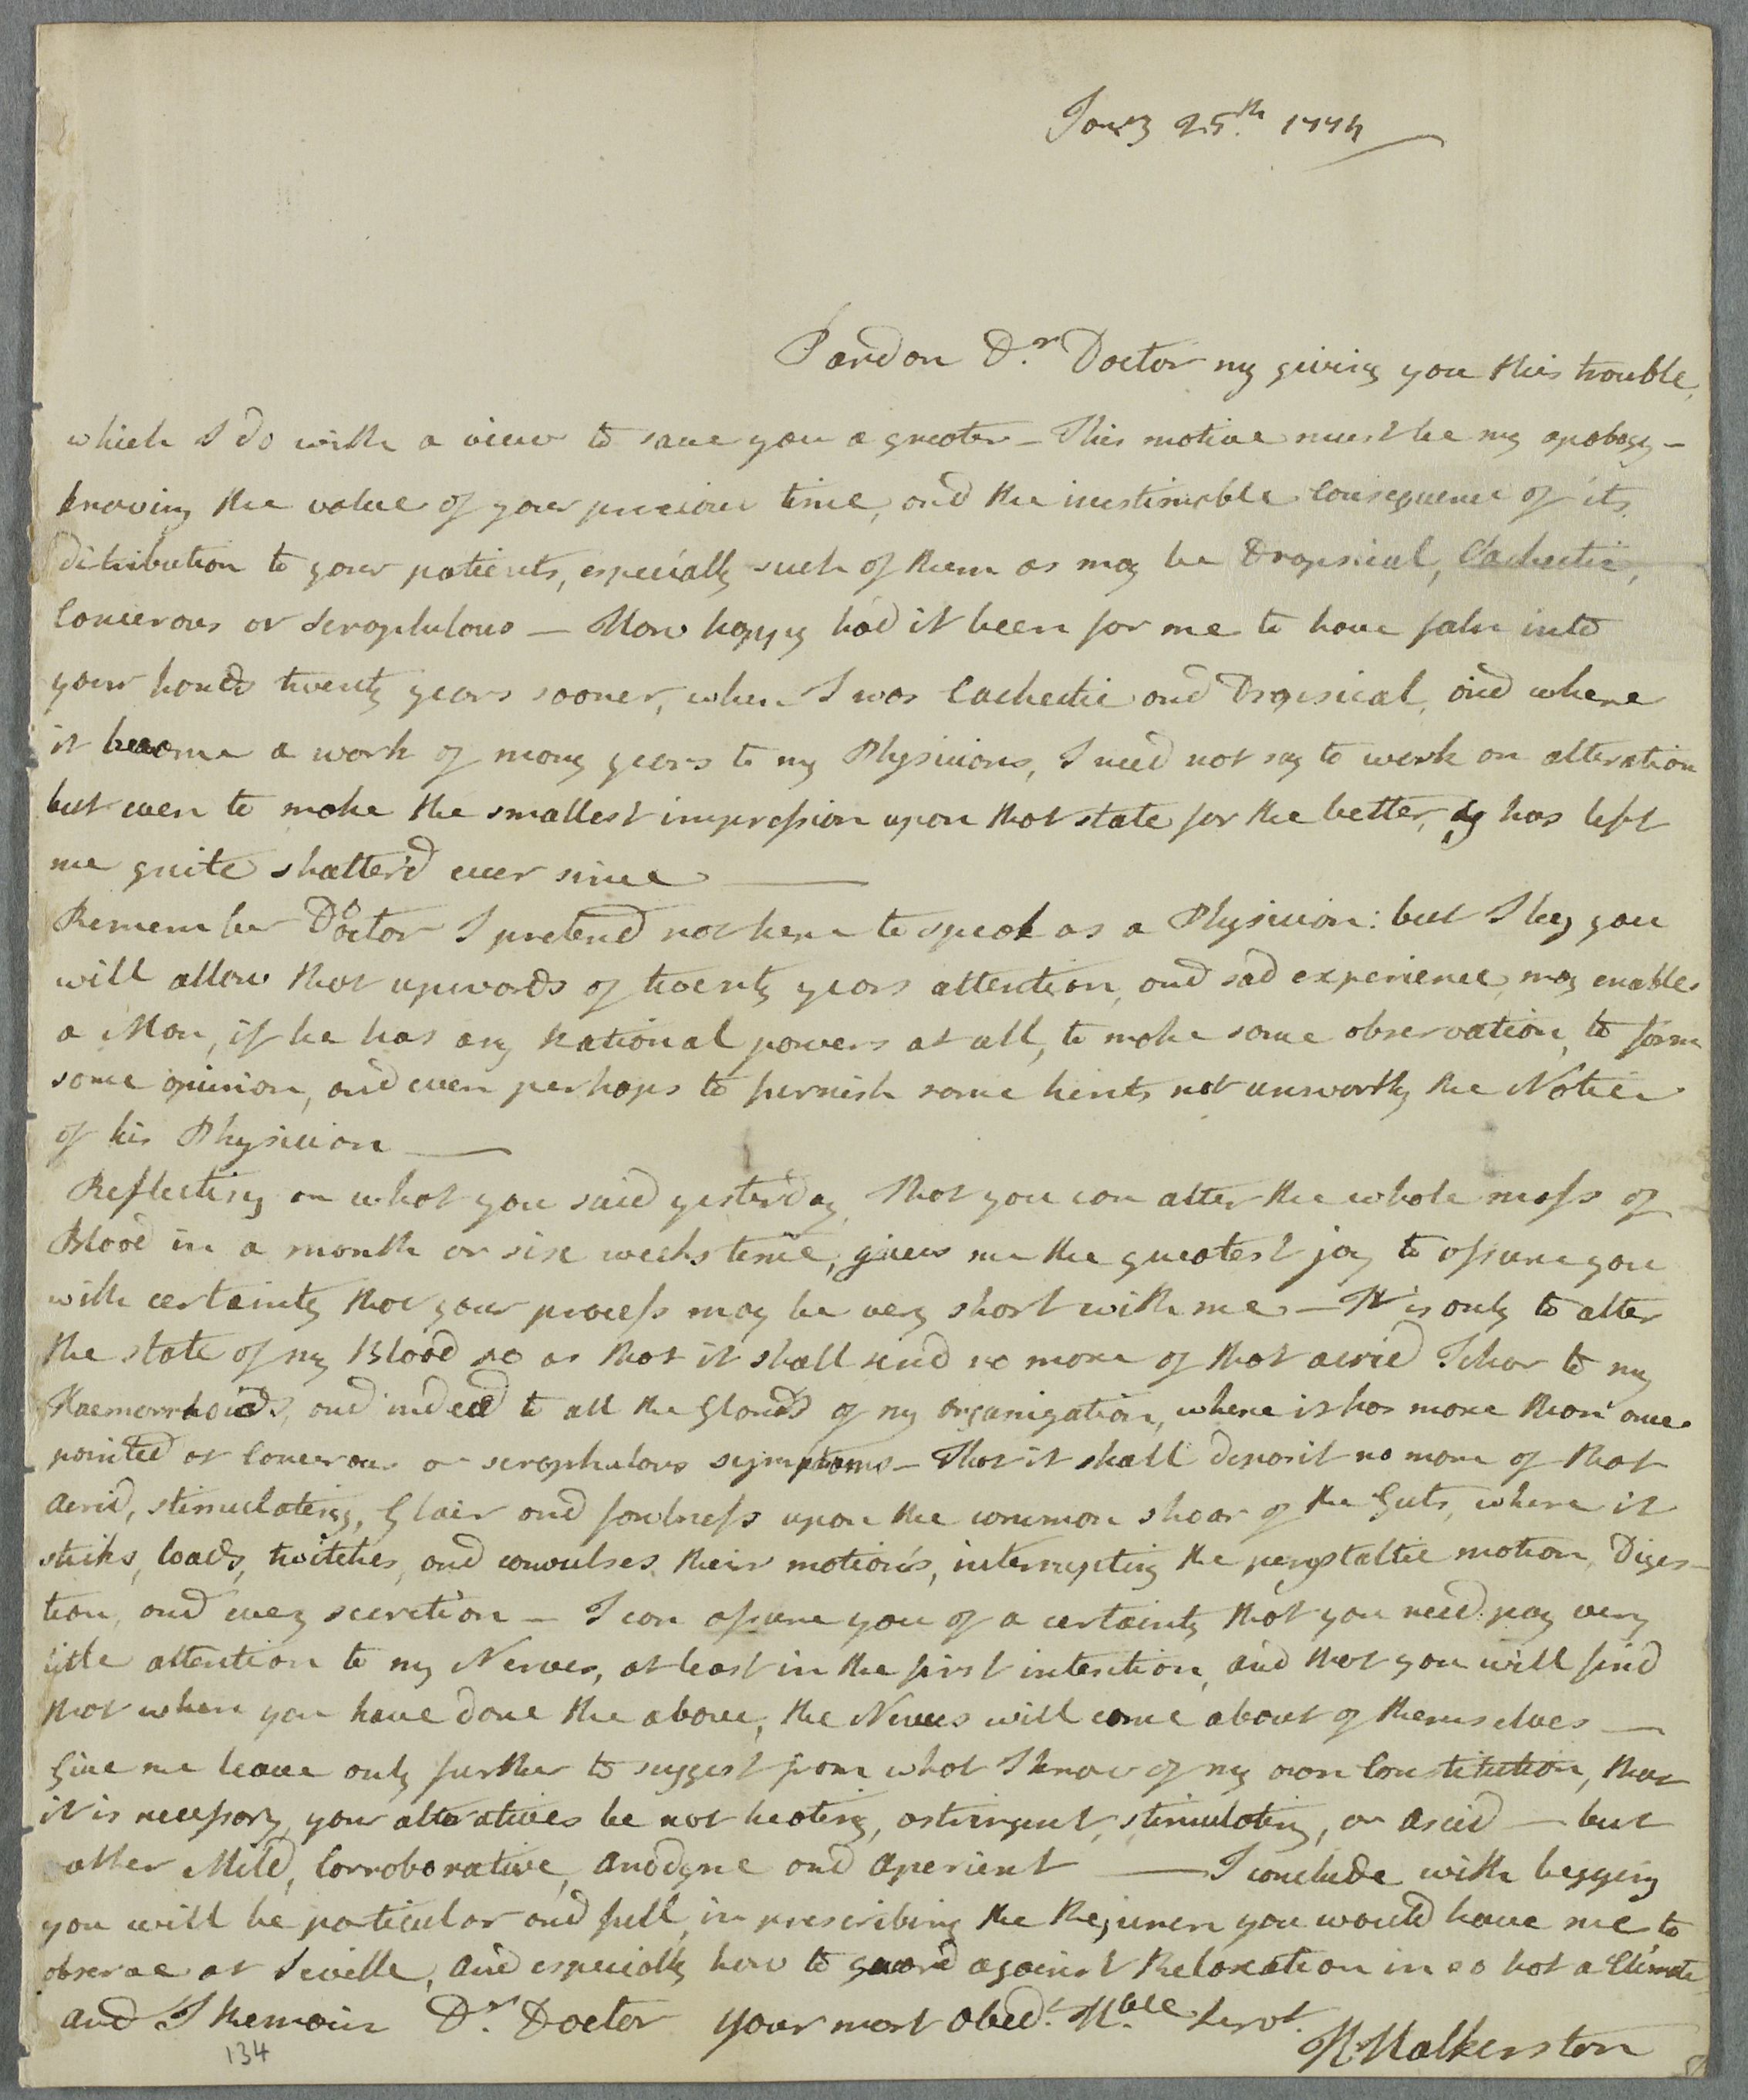 Janry 25th. 1774
Pardon Dr. Doctor my giving you this trouble,
which I do with a view to save you a greater – This motive must be my apology –
knowing the value of your precious time, and the inestimable Consequence of its
distribution to your patients, especially such of them as may be Dropsical, Cachectic,
Cancerous or Scrophulous — How happy had it been for me to have faln into
your hands twenty years sooner, when I was Cachectic and Dropsical, and where
it became a work of many years to my Physicians, I need not say to work an alteration
but even to make the smallest impression upon that state for the better, & has left
me quite shatter'd ever since —
Remember Doctor I pretend not here to speak as a Physician: but I beg you
will allow that upwards of twenty years attention, and sad experience, may enable
a Man, if he has any Rational powers at all, to make some observation, to form
some opinion, and even perhaps to furnish some hints not unworthy the Notice
of his Physician —
Reflecting on what you said yesterday, That you can alter the whole mass of
Blood in a month or six weeks time, gives me the greatest joy to assure you
with certainty that your process may be very short with me – It is only to alter
the state of my Blood so as that it shall send no more of that acrid Ichor to my
Haemorrhoids, and indeed to all the Glands of my organization, where it has more than once
pointed at Cancerous or scrophulous symptoms – That it shall deposit no more of that
acrid, stimulating, Glair and foulness upon the common shoar of the Guts, where it
sticks, loads, twitches, and convulses their motions, interrupting the perystaltic motion, Diges-
tion, and every secretion – I can assure you of a certainty that you need pay very
little attention to my Nerves, at least in the first intention, and that you will find
that when you have done the above, the Nerves will come about of themselves —
Give me leave only further to suggest from what I know of my own Constitution, that
it is necessary your alteratives be not heating, astringent, stimulating, or acrid — but
rather Mild, Corroborative, anodyne and aperient — I conclude with begging
you will be particular and full, in prescribing the Regimen you would have me to
observe at Seville, and especially how to guard against Relaxation in so hot a Climate
and I Remain Dr. Doctor your most obedt. Hble Servt.
H: Malkerston
134